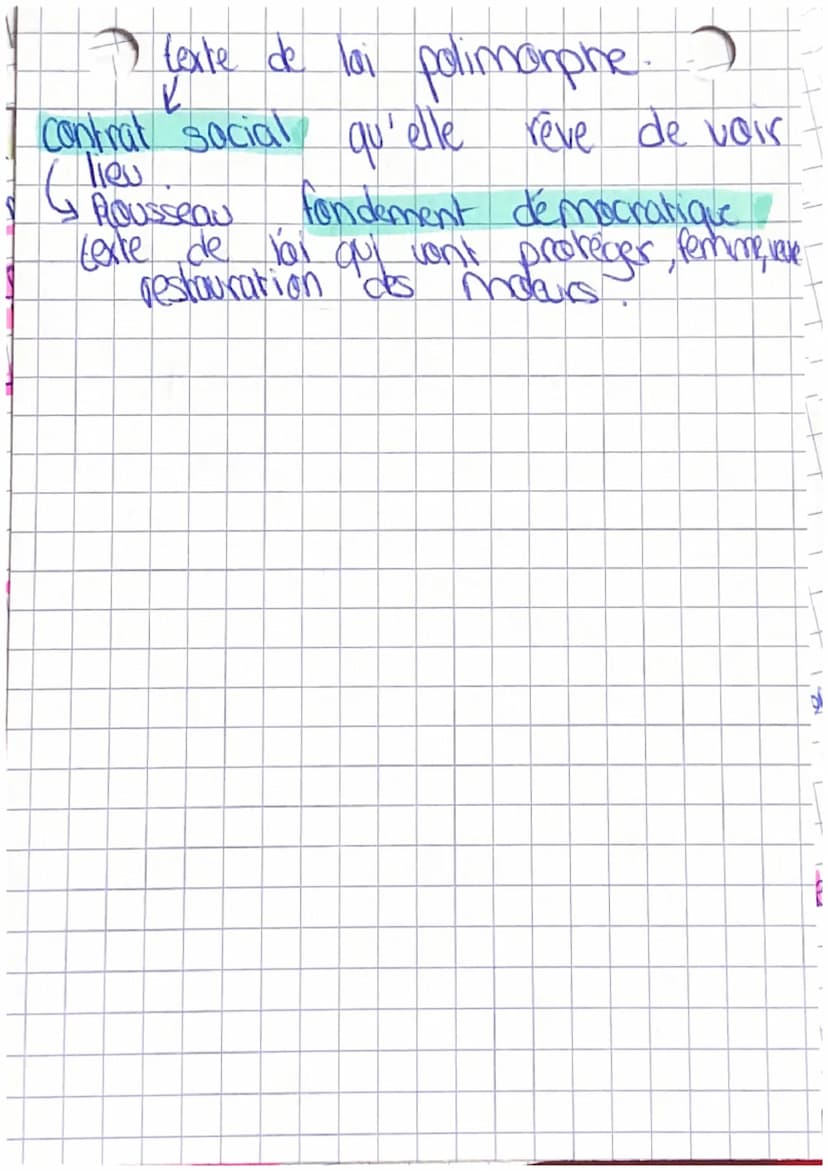 texte de loi polimorphe.
contrat social qu'elle rêve de voir
lieu.
Rousseau fondement démocratique
texte de loi qui vont protéger, femme,
restauration des mœurs.